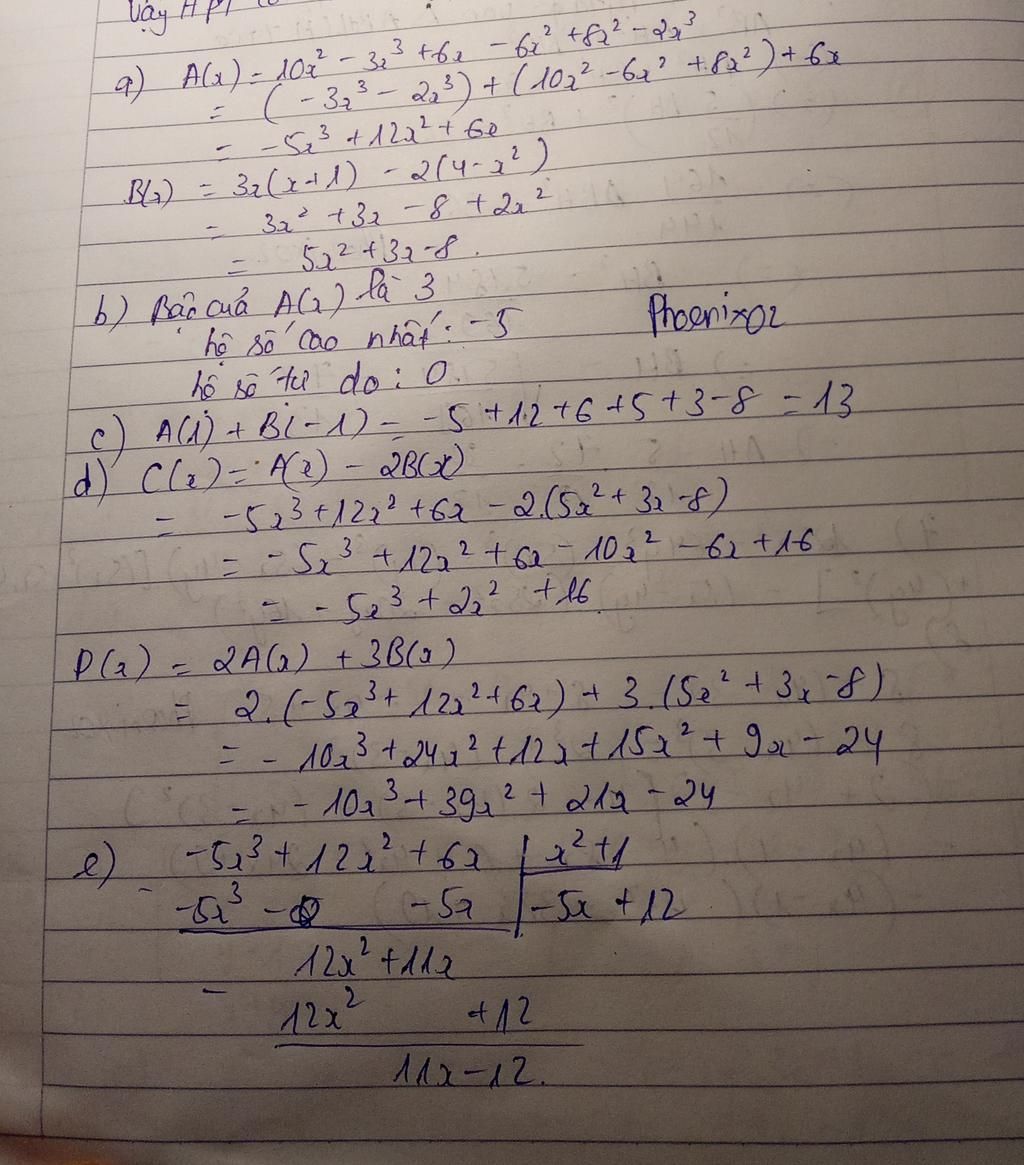 Vậy HPT có
a) A(x) = 10x² - 3x³ + 6x - 6x² + 8x² - 2x³
= (-3x³ - 2x³) + (10x² - 6x² + 8x²) + 6x
= -5x³ + 12x² + 6x
B(x) = 3x(x+1) - 2(4-x²)
= 3x² + 3x - 8 + 2x²
= 5x² + 3x - 8.
b) Bậc của A(x) là 3
hệ số cao nhất: -5
Phoenix02
hệ số tự do: 0.
c) A(1) + B(-1) = -5 + 12 + 6 + 5 + 3 - 8 = 13
d) C(x) = A(x) - 2B(x)
= -5x³ + 12x² + 6x - 2.(5x² + 3x - 8)
= -5x³ + 12x² + 6x - 10x² - 6x + 16
= -5x³ + 2x² + 16
D(x) = 2A(x) + 3B(x)
= 2.(-5x³ + 12x² + 6x) + 3.(5x² + 3x - 8)
= -10x³ + 24x² + 12x + 15x² + 9x - 24
= -10x³ + 39x² + 21x - 24
e) -5x³ + 12x² + 6x | x² + 1
- -5x³ - 5x | -5x + 12
12x² + 11x
- 12x² + 12
11x - 12.